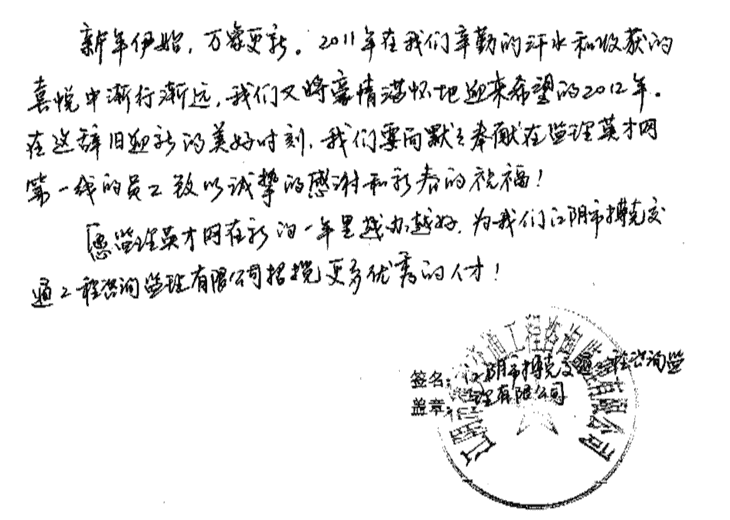 新年伊始，万象更新。2011年在我们辛勤的汗水和收获的
喜悦中渐行渐远，我们又将豪情满怀地迎来希望的2012年。
在这辞旧迎新的美好时刻，我们要向默默奉献在监理英才网
第一线的员工致以诚挚的感谢和新春的祝福！
愿监理英才网在新的一年里越办越好，为我们江阴市搏克交
通工程咨询监理有限公司招揽更多优秀的人才！
签名：江阴市搏克交通工程咨询监
盖章：理有限公司
江阴市搏克交通工程咨询监理有限公司